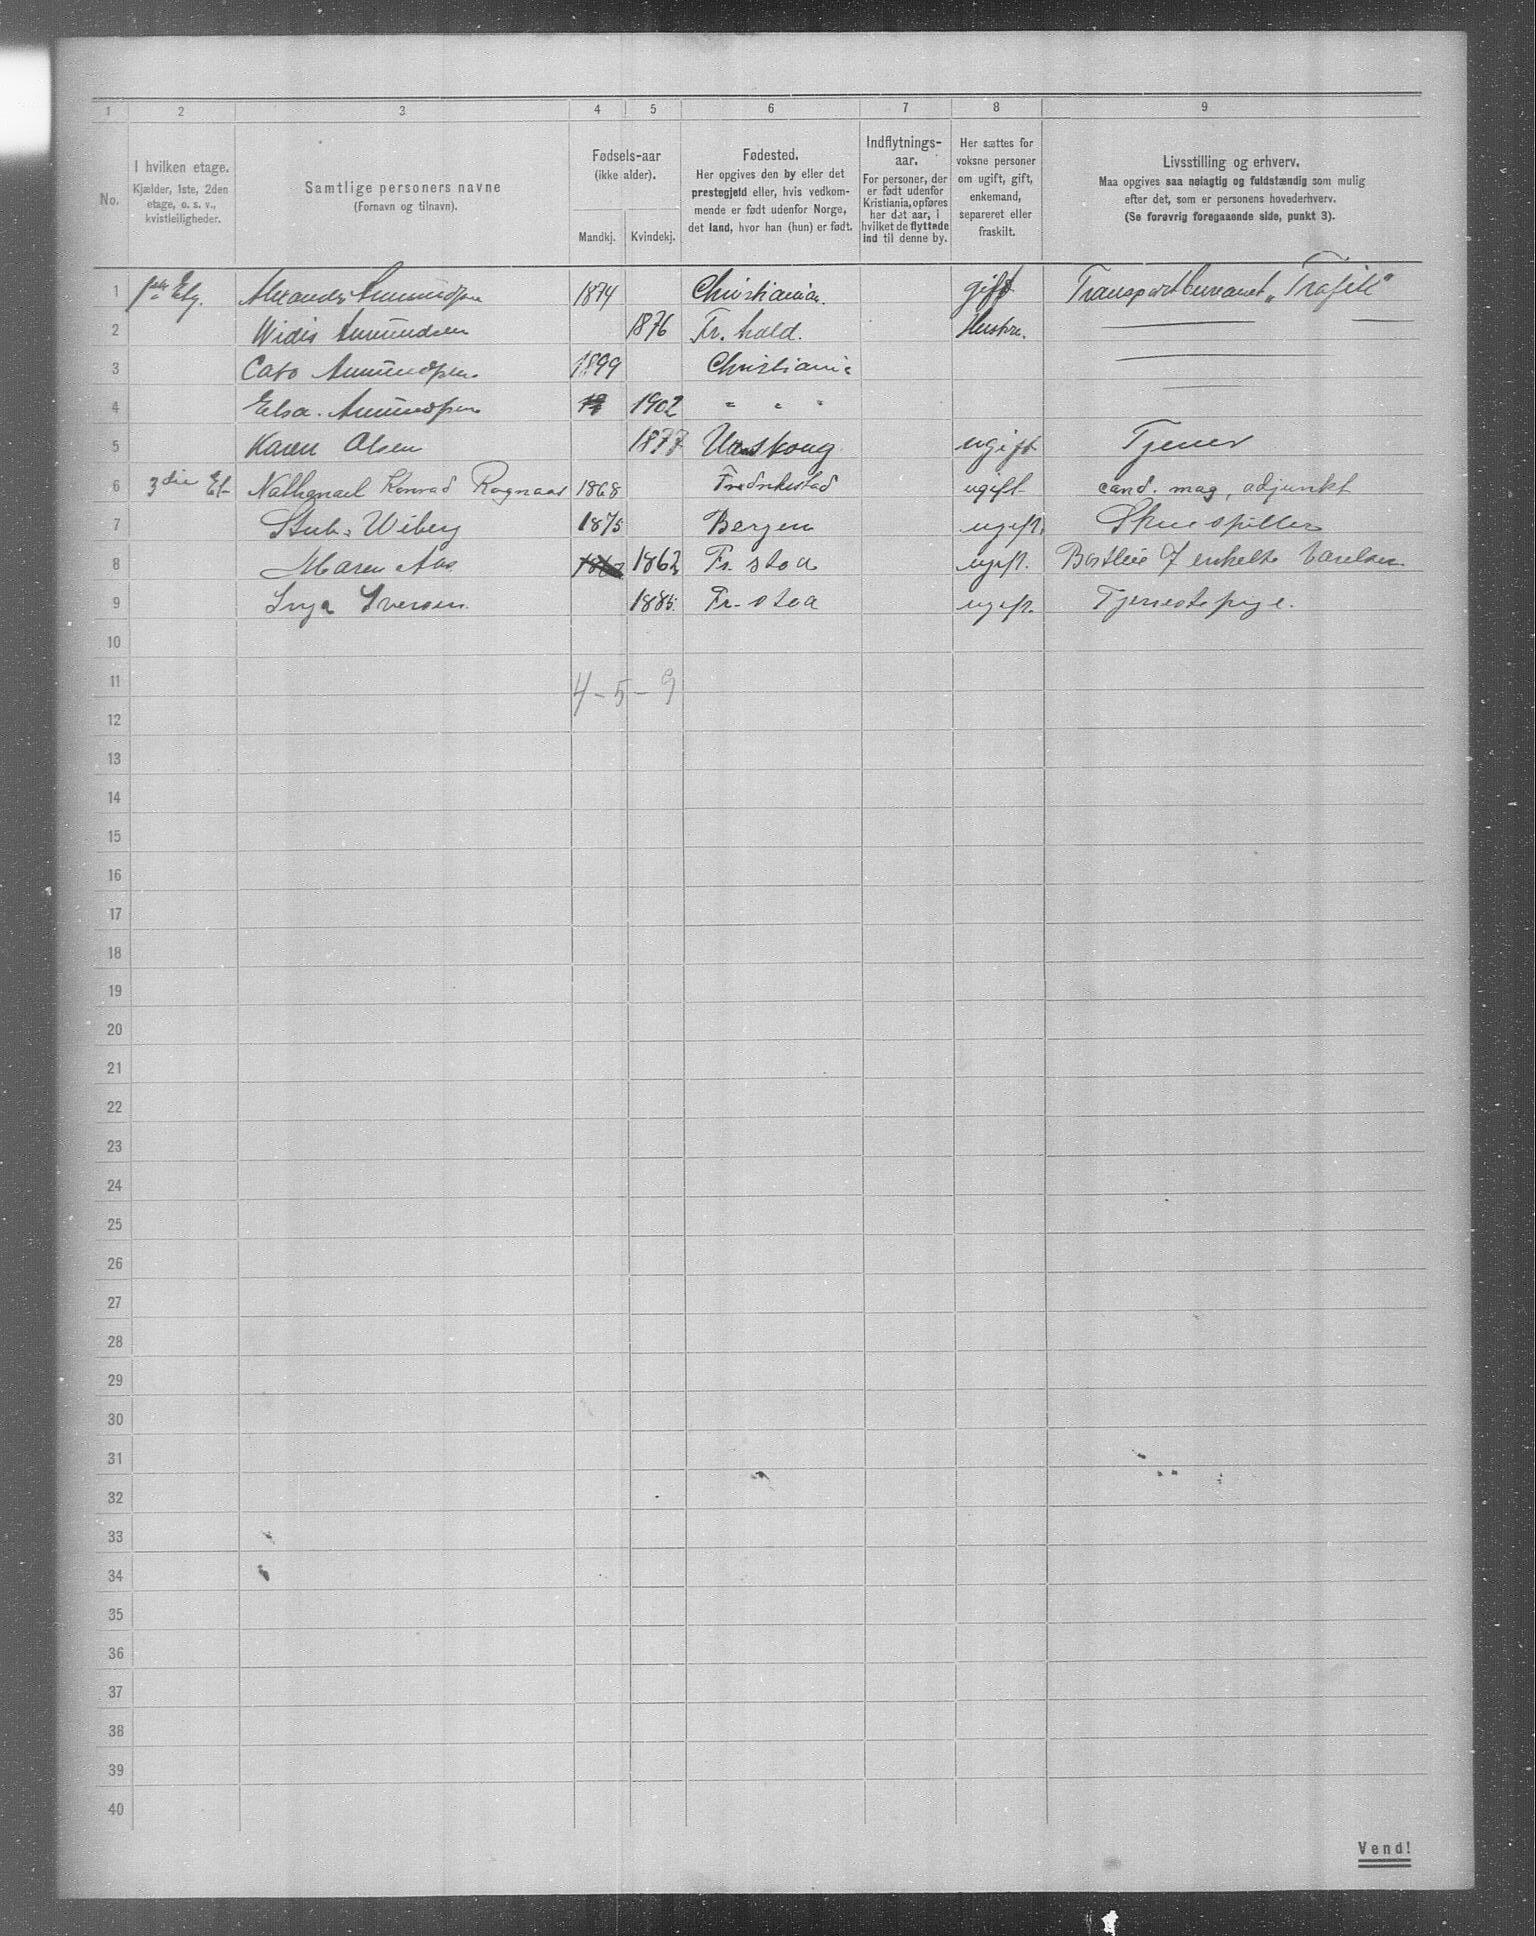 1 2 3 4 5 6 7 8 9
No.
I hvilken etage.
Kjælder, 1ste, 2den
etage, o. s. v.,
kvistleiligheder.
Samtlige personers navne
(Fornavn og tilnavn).
Fødsels-aar
(ikke alder).
Mandkj. Kvindekj.
Fødested.
Her opgives den by eller det
prestegjeld eller, hvis vedkom-
mende er født udenfor Norge,
det land, hvor han (hun) er født.
Indflytnings-
aar.
For personer, der
er født udenfor
Kristiania, opføres
her det aar, i
hvilket de flyttede
ind til denne by.
Her sættes for
voksne personer
om ugift, gift,
enkemand,
separeret eller
fraskilt.
Livsstilling og erhverv.
Maa opgives saa nøiagtig og fuldstændig som mulig
efter det, som er personens hovederhverv.
(Se forøvrig foregaaende side, punkt 3).
1 Etg. Alexander Amundsen 1874 Christiania. gift Transportbureauet „Trafik"
2 Widis Amundsen 1876 Fr. hald. Hustru.
3 Cato Amundsen 1899 Christiania
4 Elsa. Amundsen 1902 " " "
5 Karen Olsen 1877 Urskoug ugift Tjener
6 3die Et. Nathanael Konrad Rognaas 1868 Fredrikstad ugift cand. mag, adjunkt
7 Stub. Wiberg 1875 Bergen ugift. Skuespiller
8 Maren Aas 1862 Fr. stad ugift. Bortleie af enkelte Værelser
9 Inga Iversen 1885. Fr. stad ugift. Tjenestepige.
10
11 4 - 5 - 9
12
13
14
15
16
17
18
19
20
21
22
23
24
25
26
27
28
29
30
31
32
33
34
35
36
37
38
39
40
Vend!